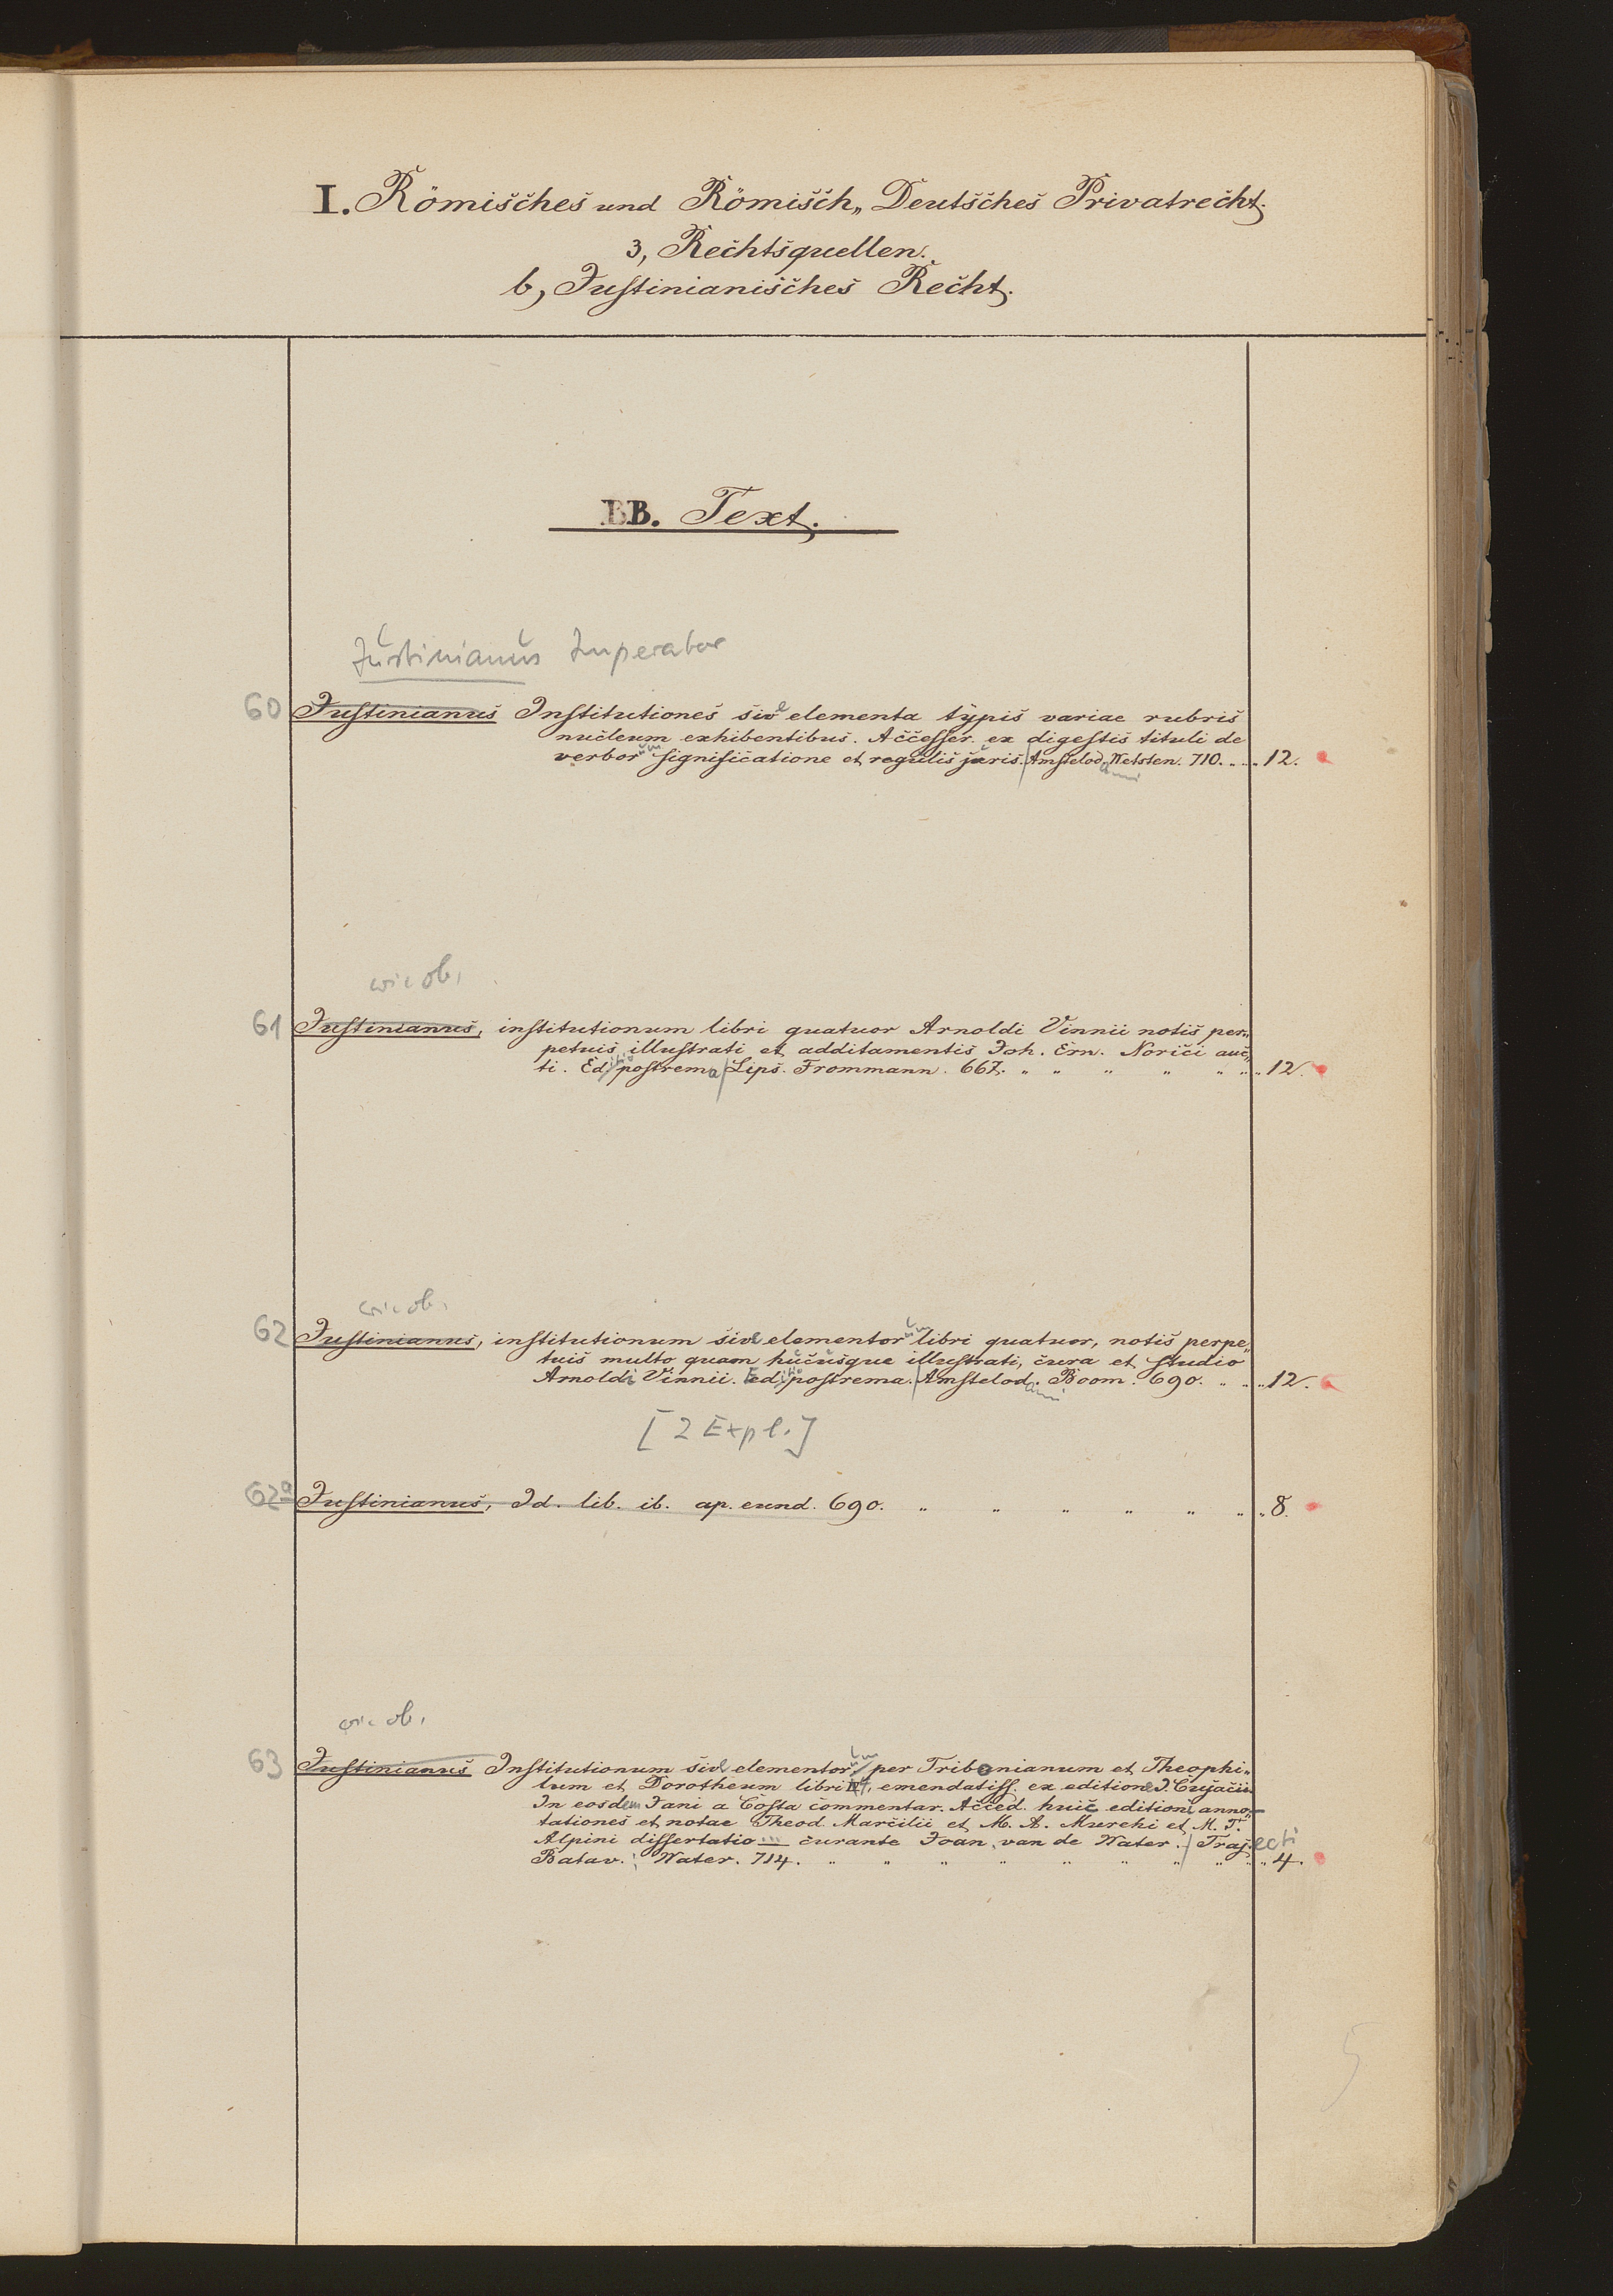 I. Römisches und Römisch„ Deutsches Privatrecht.
3, Rechtsquellen.
b, Justinianisches Recht.
BB. Text.
Justinianus Imperator
60 Justinianus Institutiones sive elementa typis variae rubris
nucleum exhibentibus. Accesser. ex digestis tituli de
verborum significatione et regulis juris. Amstelodami Wetsten. 710. „ „ 12.
wie ob.
61 Justinianus, institutionum libri quatuor Arnoldi Vinnii notis per„
petuis illustrati et additamentis Joh. Ern. Norici auc„
ti. Editio postrema Lips. Frommann. 667. „ „ „ „ „ „ 12.
wie ob.
62 Justinianus, institutionum sive elementorum libri quatuor, notis perpe„
tuis multo quam hucusque illustrati, cura et studio
Arnoldi Vinnii. Editio postrema. Amstelodami. Boom. 690. „ „ 12.
[2 Expl.]
62a Justinianus, Id. lib. ib. ap. eund. 690. „ „ „ „ „ „ 8.
wie ob.
63 Justinianus Institutionum sive elementorum per Tribonianum et Theophi„
lum et Dorotheum libri IV, emendatiss. ex editione J. Cujacii.
In eosdem Jani a Costa commentar. Acced. huic editioni anno„
tationes et notae Theod. Marcilii et M. A. Murehi et M. T.
Alpini dissertatio ... curante Joan. van de Water. Trajecti
Batav.: Water. 714. „ „ „ „ „ „ „ „ 4.
5